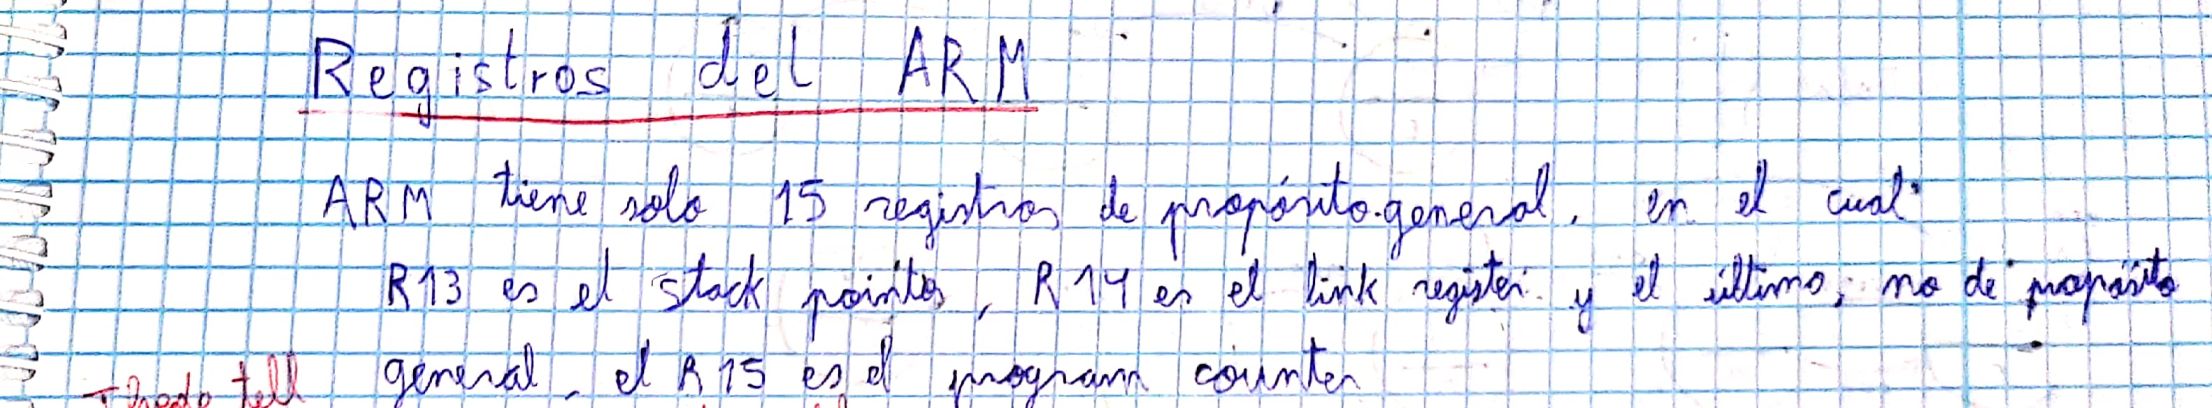 Registros del ARM
ARM tiene solo 15 registros de propósito general, en el cual
R13 es el stack pointer, R14 es el link register y el último, no de propósito
general, el R15 es el program counter